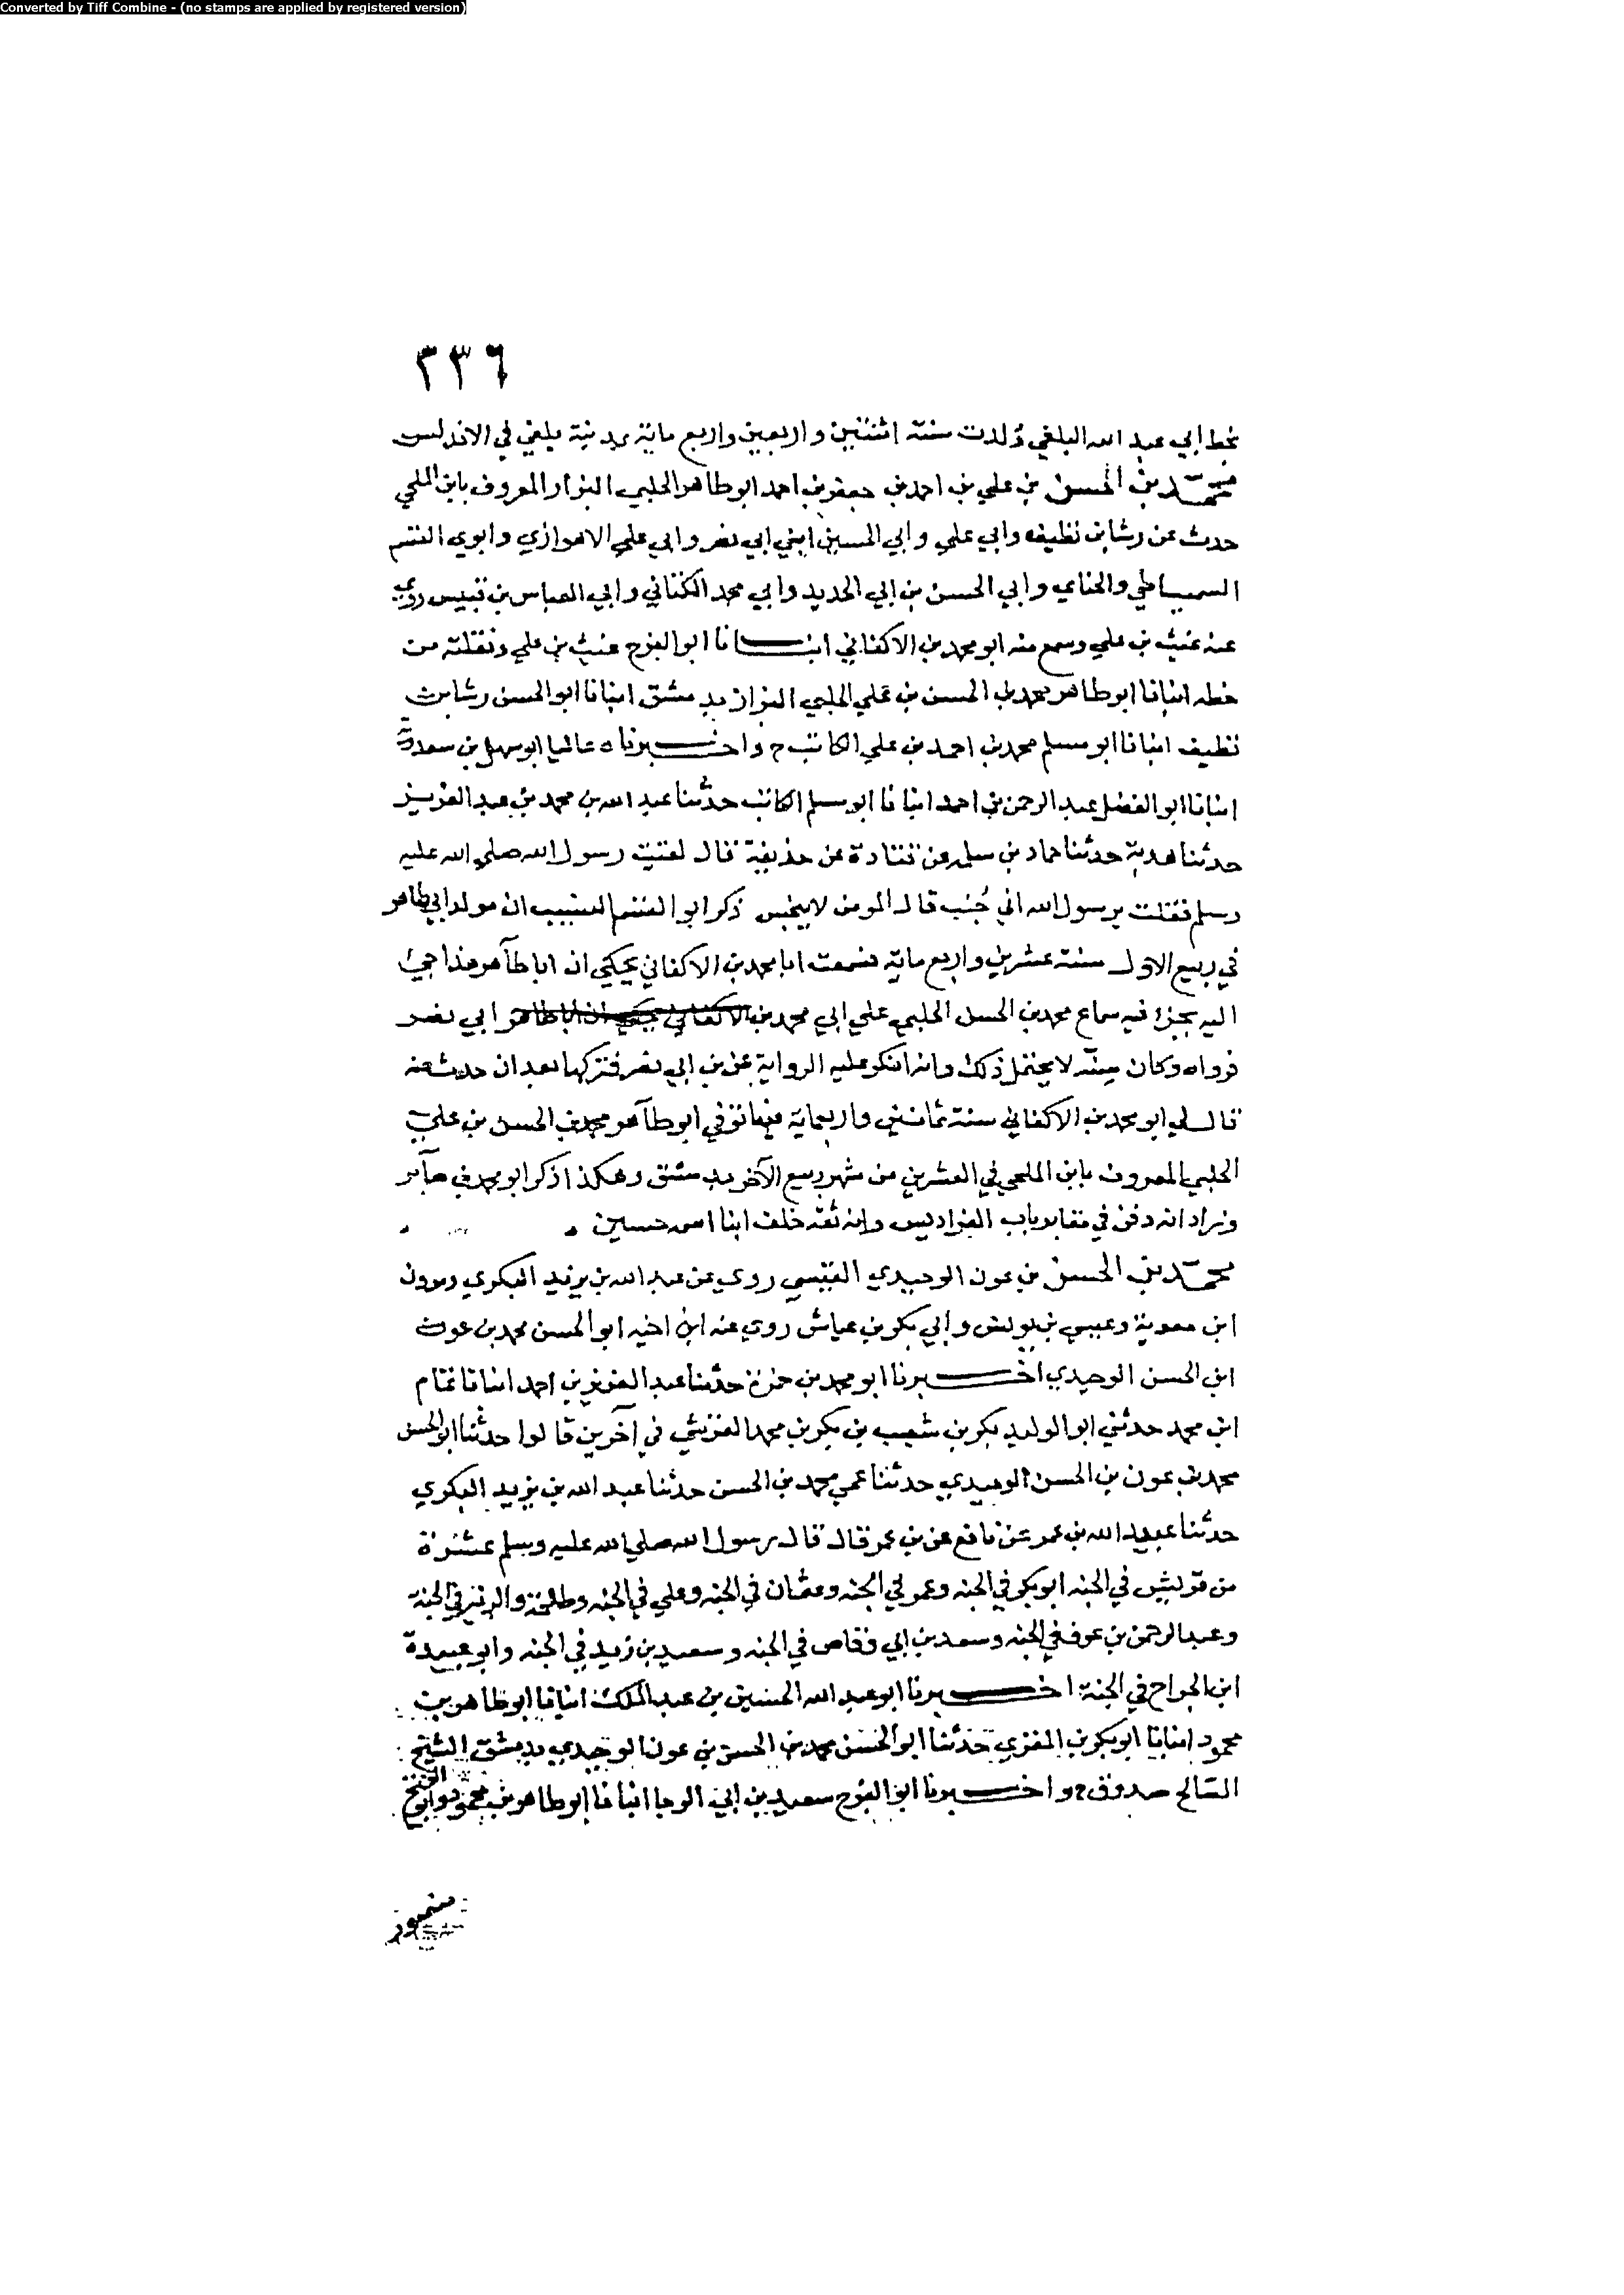 Converted by Tiff Combine - (no stamps are applied by registered version)
٣٣٦
بخط ابي عبد الله البلغي ولدت سنة اثنتين واربعين واربع ماية بمدينة بلغي في الاندلس
محمد بن الحسن بن علي بن احمد بن جعفر بن احمد ابو طاهر الحلبي البزار المعروف بابن الملحي
حدث عن رشا بن نظيف وابي علي وابي الحسين ابني ابي نصر وابي علي الاهوازي وابوي القسم
السميساطي والحناي وابي الحسن بن ابي الحديد وابي محمد الكتاني وابي العباس بن قبيس روي
عنه غيث بن علي وسمع منه ابو محمد بن الاكفاني انبانا ابو الفرج غيث بن علي ونقلته من
خطه انبانا ابو طاهر محمد بن الحسن بن علي الحلبي البزاز بدمشق انبانا ابو الحسن رشا بن
نظيف انبانا ابو مسلم محمد بن احمد بن علي الكاتب ح واخبرناه عاليا ابو سهل بن سعدوية
انبانا ابو الفضل عبد الرحمن بن احمد انبانا ابو مسلم الكاتب حدثنا عبد الله بن محمد بن عبد العزيز
حدثنا هدبة حدثنا حماد بن سلمه عن قتادة عن حذيفة قال لقيت رسول الله صلي الله عليه
وسلم فقلت يرسول الله اني جُنب قال المومن لا ينجس ذكر ابو القسم النسيب ان مولد ابي طاهر
في ربيع الاول سنة عشرين واربع ماية سمعت ابا محمد بن الاكفاني يحكي ان ابا طاهر هذا جيئ
اليه بجزء فيه سماع محمد بن الحسن الحلبي علي ابي محمد بن الاكفاني يحكي ان ابا طاهر ابي نصر
فرواه وكان سِنّه لا يحتمل ذلك وانه انكر عليه الرواية عن بن ابي نصر فتركها بعد ان حدث عنه
قال لي ابو محمد بن الاكفاني سنة ثمانين واربعماية فيها توفي ابو طاهر محمد بن الحسن بن علي
الحلبي المعروف بابن الملحي في العشرين من شهر ربيع الآخر بدمشق وهكذا ذكر ابو محمد بن صابر
وزاد انه دفن في مقابر باب الفراديس وانه ثقه خلف ابنا اسمه حسين
محمد بن الحسن بن عون الوحيدي القيسي روي عن عبد الله بن يزيد البكري ومروان
ابن معوية وعيسي بن يونس وابي بكر بن عياش روي عنه ابن اخيه ابو الحسن محمد بن عون
ابن الحسن الوحيدي اخبرنا ابو محمد بن حمزة حدثنا عبد العزيز بن احمد انبانا تمام
ابن محمد حدثني ابو الوليد بكر بن شعيب بن بكر بن محمد القرشي في آخرين قالوا حدثنا ابو الحسن
محمد بن عون بن الحسن الوحيدي حدثنا عمي محمد بن الحسن حدثنا عبد الله بن يزيد البكري
حدثنا عبيد الله بن عمر عن نافع عن بن عمر قال قال رسول الله صلي الله عليه وسلم عشرة
من قريش في الجنه ابو بكر في الجنه وعمر في الجنه وعثمان في الجنه وعلي في الجنه وطلحة والزبير في الجنة
وعبد الرحمن بن عوف في الجنه وسعد بن ابي وقاص في الجنه وسعيد بن زيد في الجنه وابو عبيدة
ابن الجراح في الجنة اخبرنا ابو عبد الله الحسين بن عبد الملك انبانا ابو طاهر بن
محمود انبانا ابو بكر بن المقري حدثنا ابو الحسن محمد بن الحسن بن عون الوحيدي بدمشق الشيخ
الصالح صدوق ح واخبرنا ابو الفرج سعيد بن ابي الرجا انبانا ابو طاهر بن محمود وابو الفتح
منصور